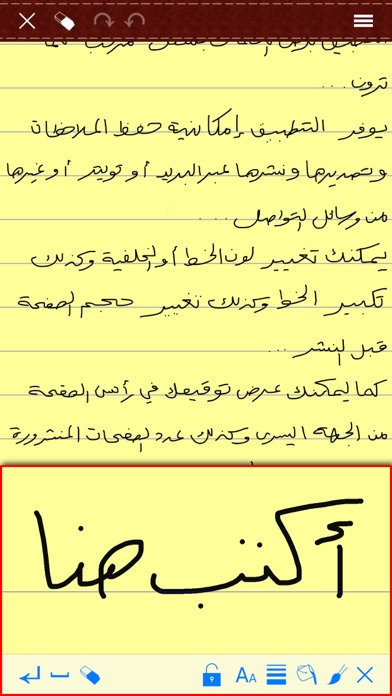 ترون...
يوفر التطبيق إمكانية حفظ الملاحظات
وتصديرها ونشرها عبر البريد أو تويتر أو غيرها
من وسائل التواصل....
يمكنك تغيير لون الخط أو الخلفية وكذلك
تكبير الخط وكذلك تغيير حجم الصفحة
قبل النشر...
كما يمكنك عرض توقيعك في رأس الصفحة
من الجهة اليسرى وكذلك عدد الصفحات المنشورة
أكتب هنا
AA